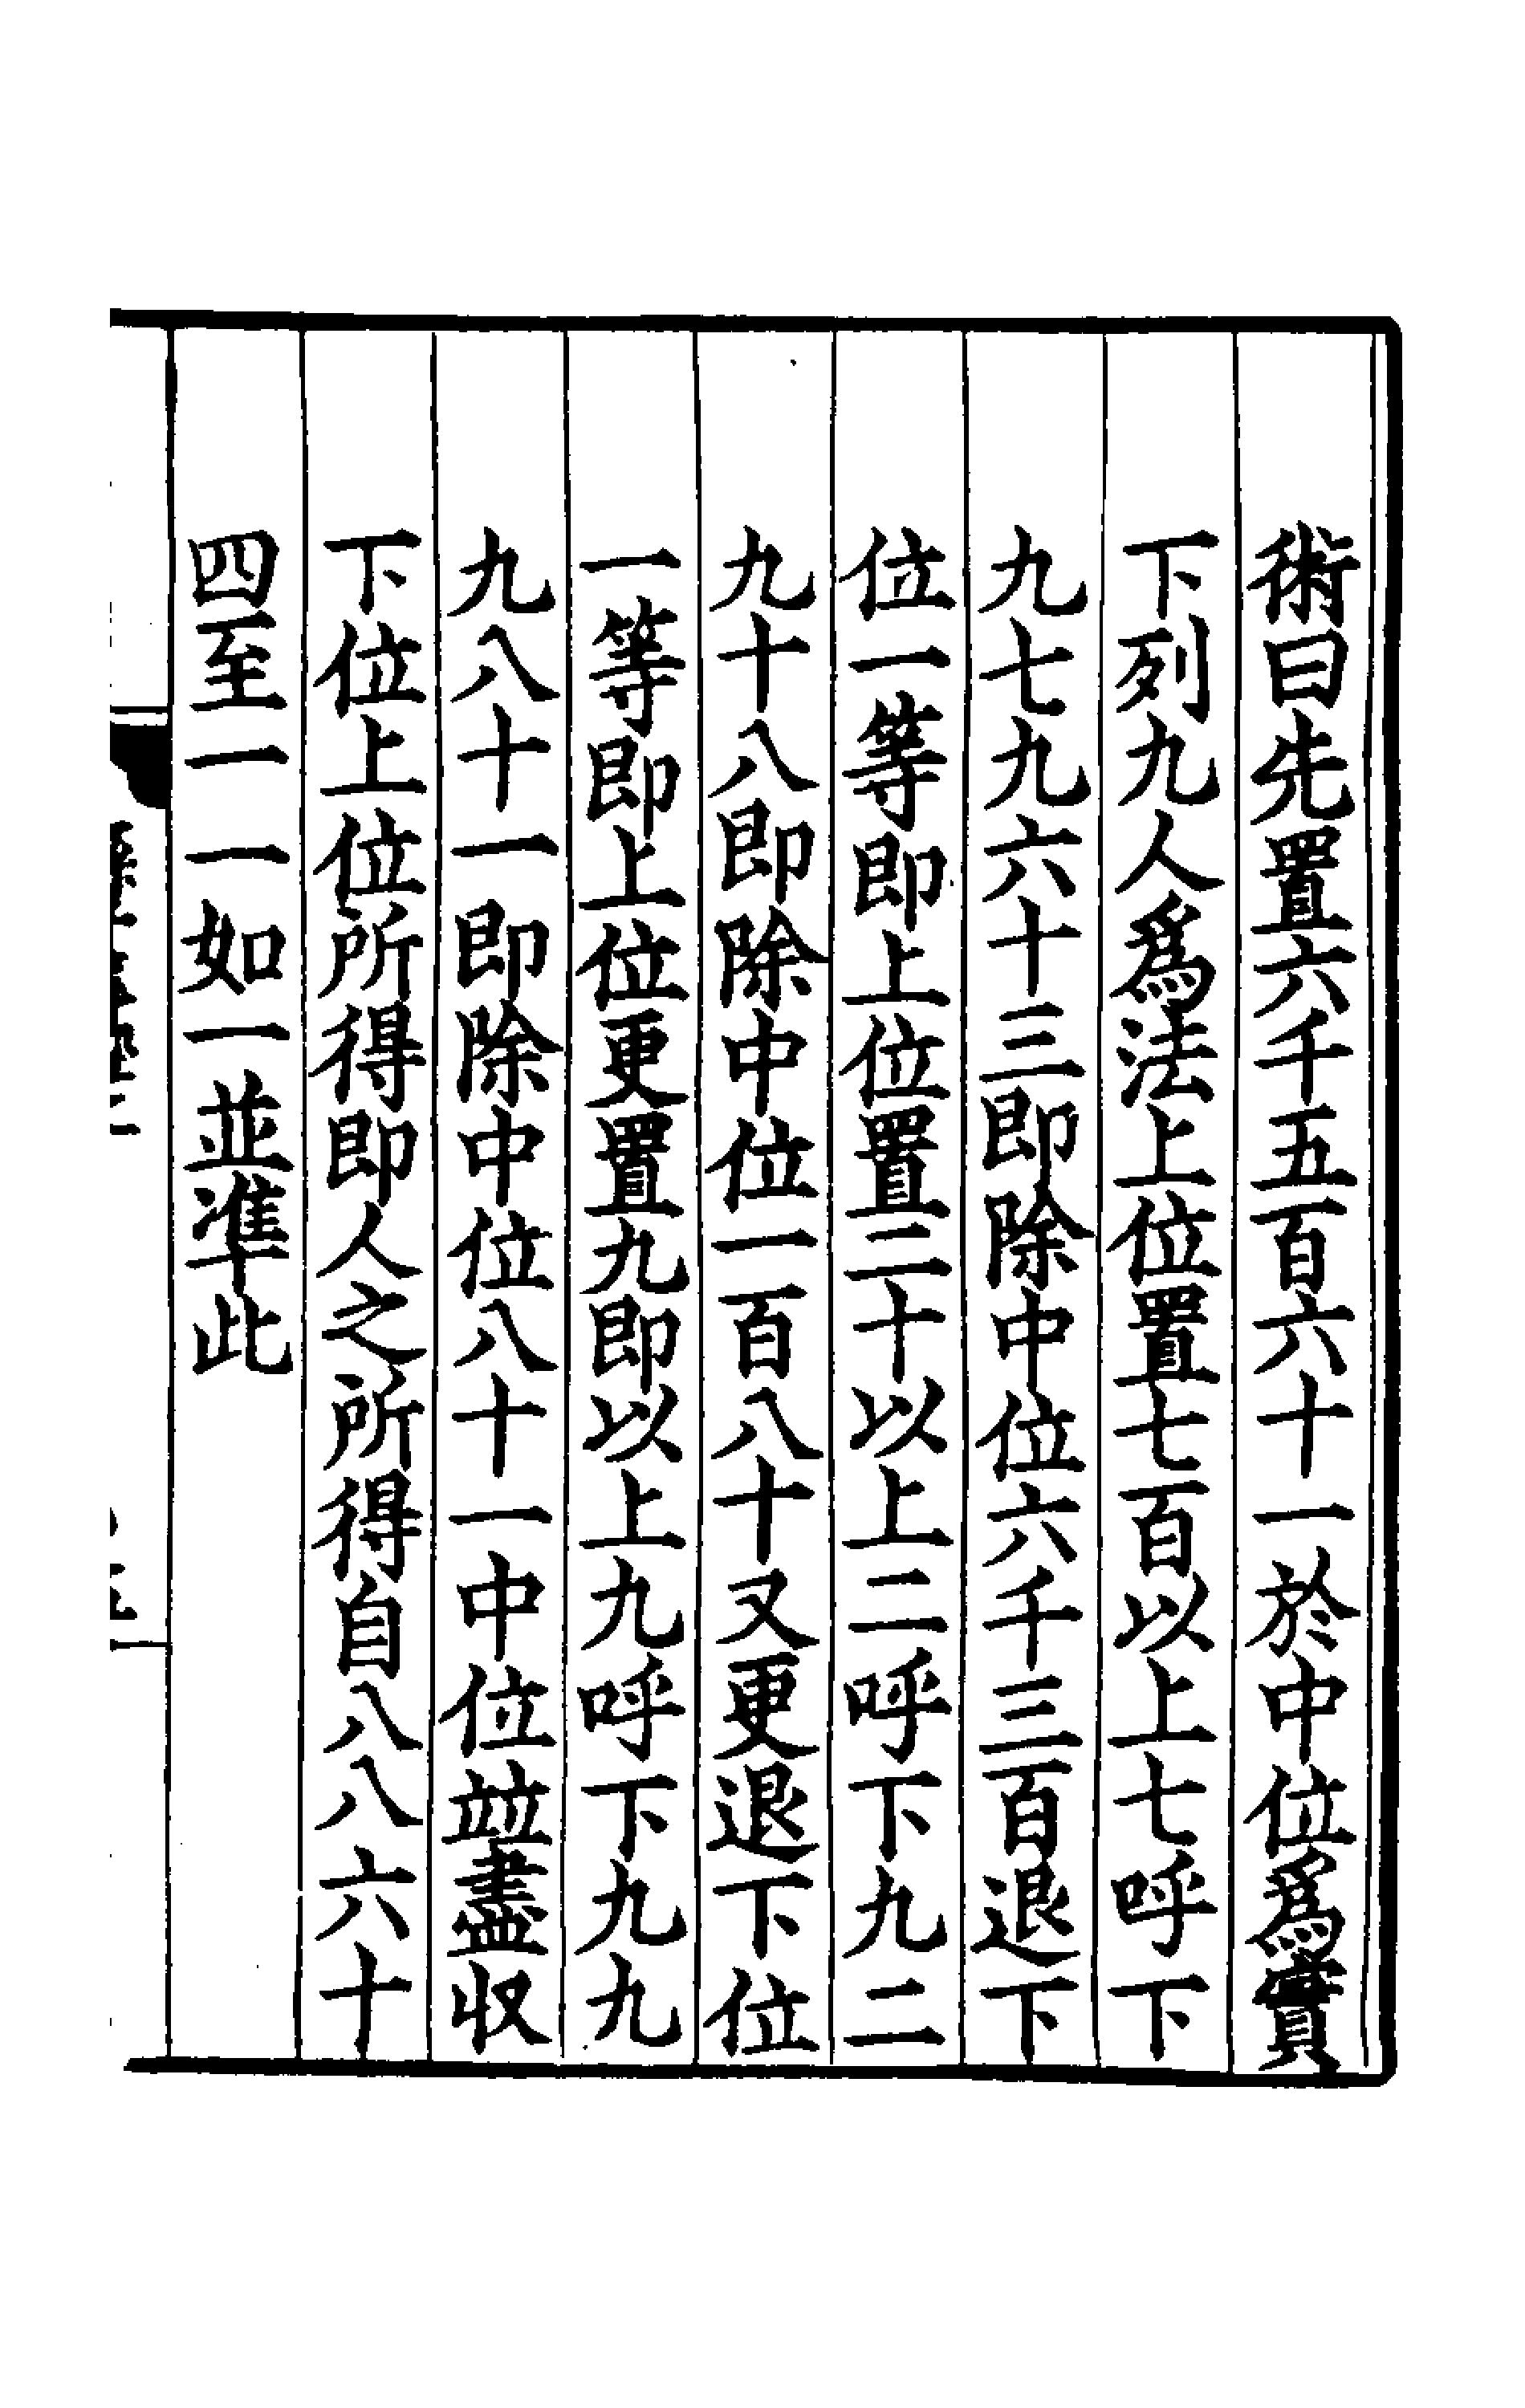 術曰先置六千五百六十一於中位爲實
下列九人爲法上位置七百以上七呼下
九七九六十三即除中位六千三百退下
位一等即上位置二十以上二呼下九二
九十八即除中位一百八十又更退下位
一等即上位更置九即以上九呼下九九
九八十一即除中位八十一中位竝盡収
下位上位所得即人之所得自八八六十
四至一一如一並準此